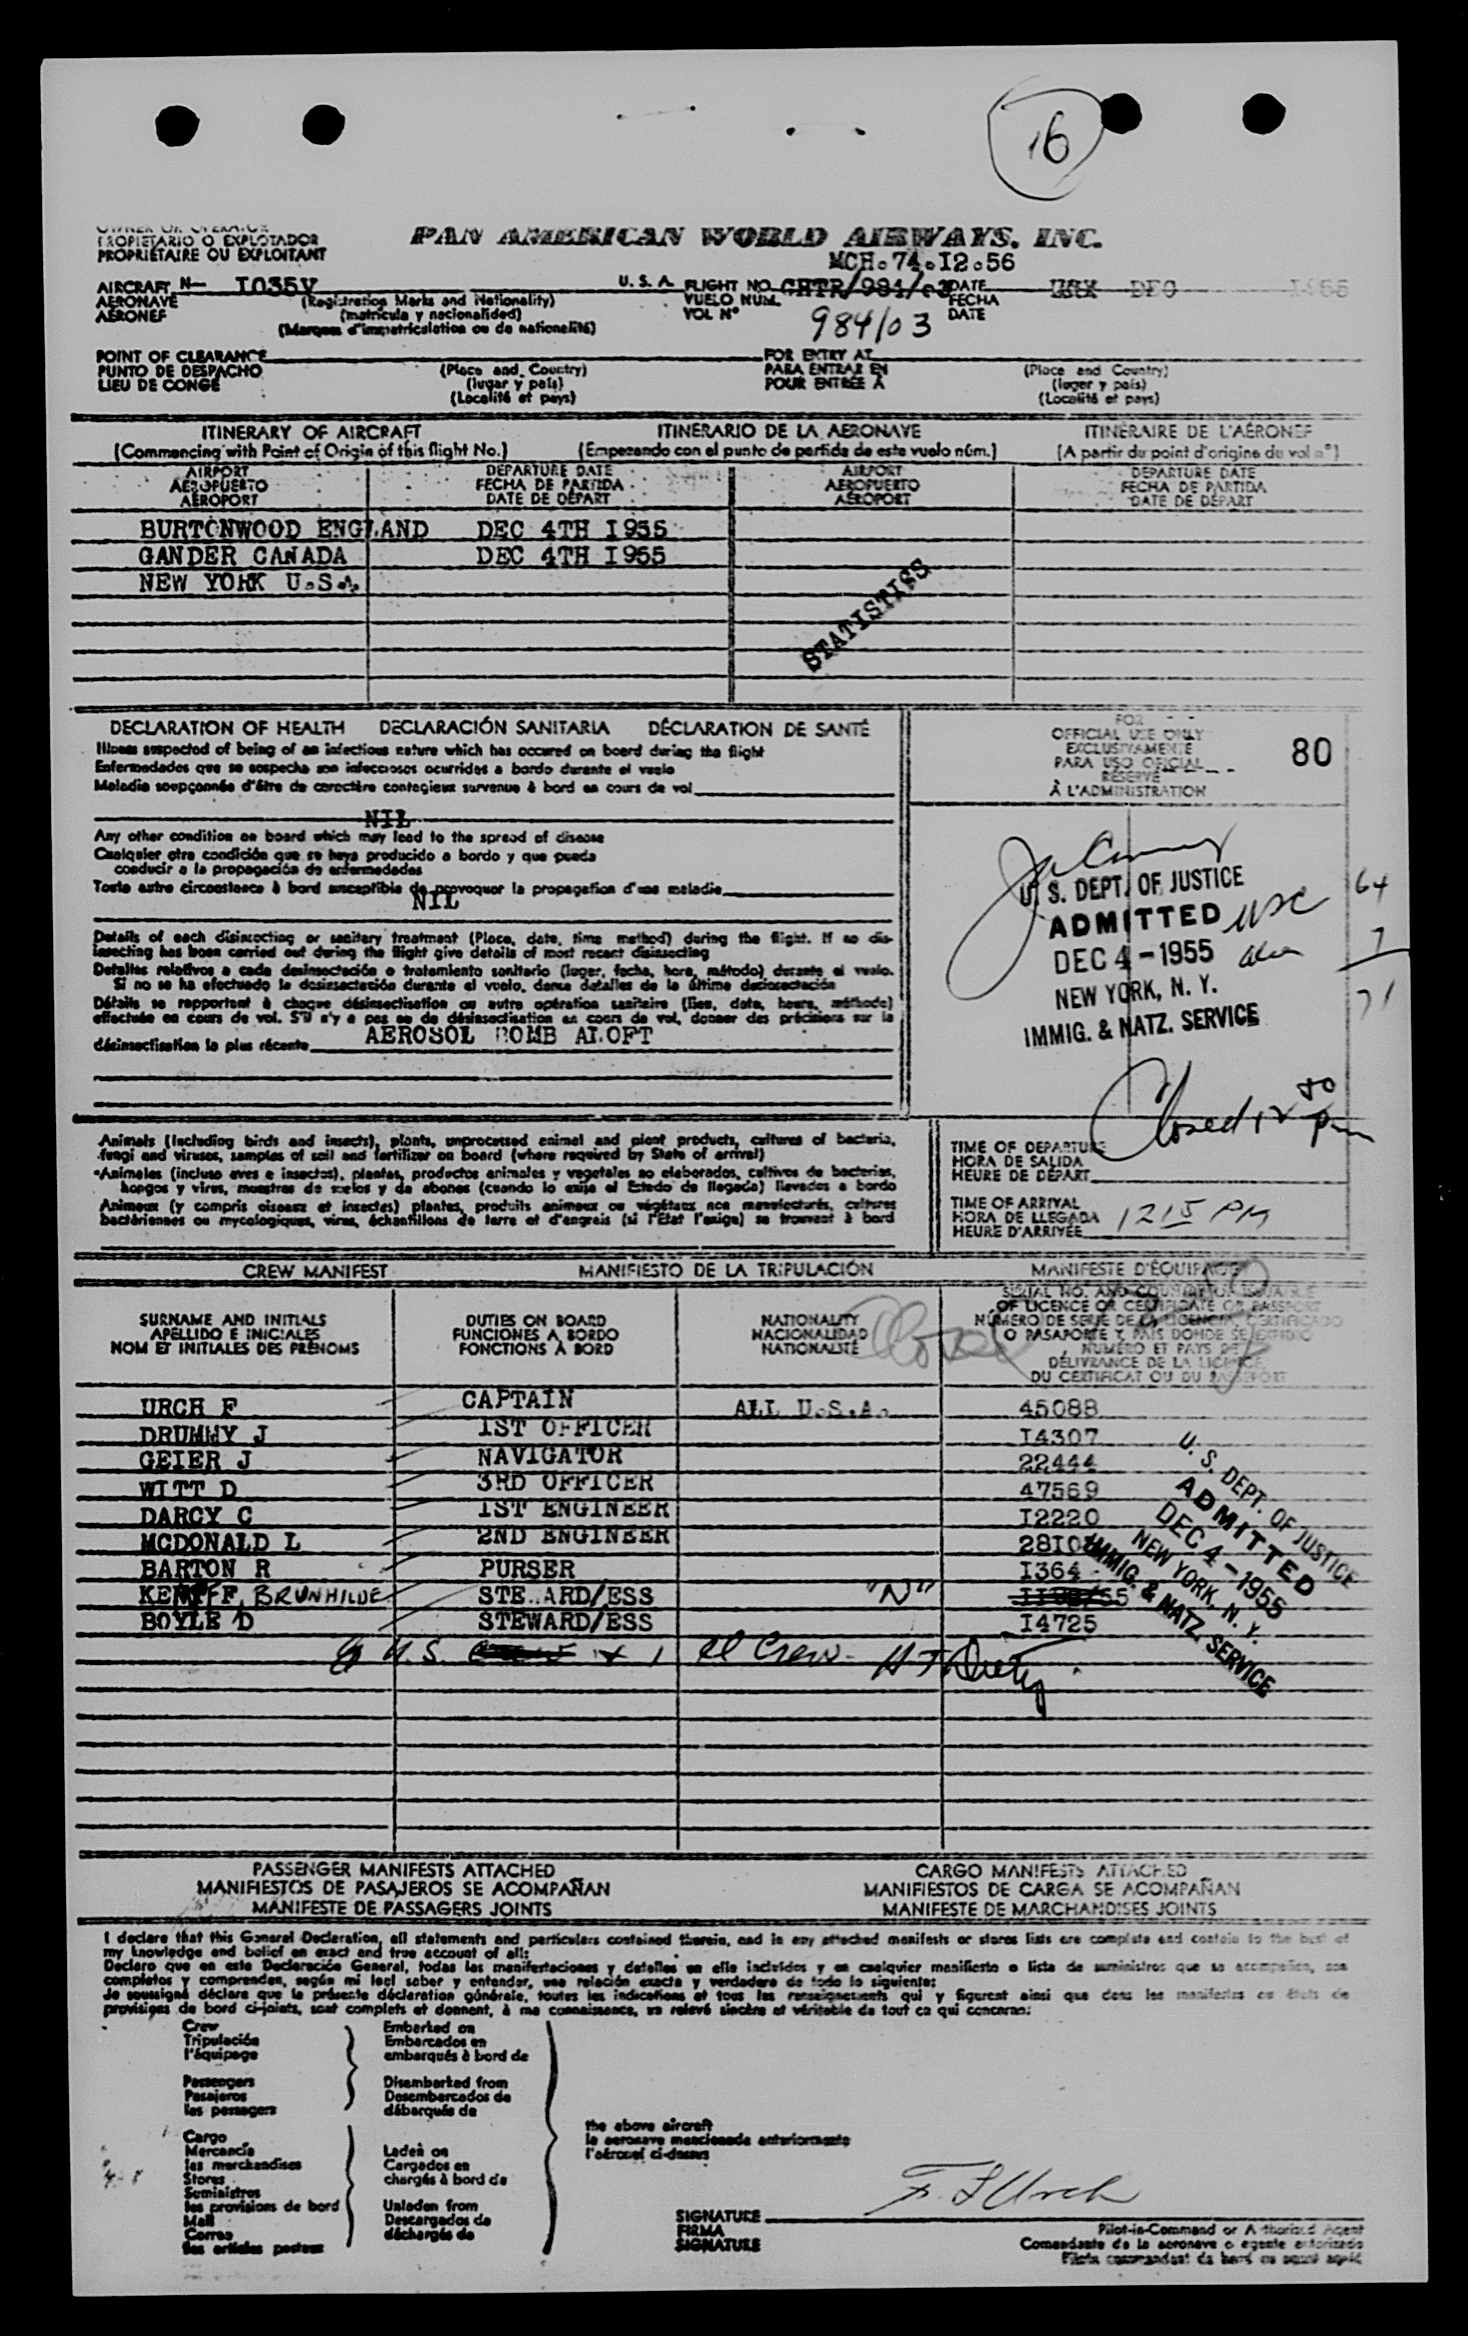 16
PROPIETARIO O EXPLOTADOR
PROPRIÉTAIRE OU EXPLOITANT
PAN AMERICAN WORLD AIRWAYS, INC.
MCH.74.I2.56
AIRCRAFT N— I035V U. S. A. FLIGHT NO. DATE DEC
AERONAVE (Registration Marks and Nationality) VUELO NUM. FECHA
AÉRONEF (matrícula y nacionalidad) VOL N° 984/03 DATE
(Marques d'immatriculation ou de nationalité)
POINT OF CLEARANCE FOR ENTRY AT
PUNTO DE DESPACHO (Place and Country) PARA ENTRAR EN (Place and Country)
LIEU DE CONGÉ (lugar y país) POUR ENTRÉE À (lugar y país)
(Localité et pays) (Localité et pays)
ITINERARY OF AIRCRAFT ITINERARIO DE LA AERONAVE ITINÉRAIRE DE L'AÉRONEF
(Commencing with Point of Origin of this flight No.) (Empezando con el punto de partida de este vuelo núm.) (A partir du point d'origine du vol n°)
AIRPORT DEPARTURE DATE AIRPORT DEPARTURE DATE
AEROPUERTO FECHA DE PARTIDA AEROPUERTO FECHA DE PARTIDA
AÉROPORT DATE DE DÉPART AÉROPORT DATE DE DÉPART
BURTONWOOD ENGLAND DEC 4TH I955
GANDER CANADA DEC 4TH I955
NEW YORK U.S.A.
STATISTISS
DECLARATION OF HEALTH DECLARACIÓN SANITARIA DÉCLARATION DE SANTÉ
Illness suspected of being of an infectious nature which has occured on board during the flight
Enfermedades que se sospecha son infecciosos ocurridas a bordo durante el vuelo
Maladie soupçonnée d'être de caractère contagieux survenue à bord en cours de vol
NIL
Any other condition on board which may lead to the spread of disease
Cualquier otra condición que se haya producido a bordo y que pueda
conducir a la propagación de enfermedades
Toute autre circonstance à bord susceptible de provoquer la propagation d'une maladie
NIL
Details of each disinsecting or sanitary treatment (Place, date, time method) during the flight. If no dis-
insecting has been carried out during the flight give details of most recent disinsecting
Detalles relativos a cada desinsectación o tratamiento sanitario (lugar, fecha, hora, método) durante el vuelo.
Si no se ha efectuado la desinsectación durante el vuelo, dense detalles de la última desinsectación
Détails se rapportant à chaque désinsectisation ou autre opération sanitaire (lieu, date, heure, méthode)
effectuée en cours de vol. S'il n'y a pas eu de désinsectisation en cours de vol, donner des précisions sur la
désinsectisation la plus récente AEROSOL BOMB ALOFT
FOR
OFFICIAL USE ONLY
EXCLUSIVAMENTE
PARA USO OFICIAL
RÉSERVÉ
À L'ADMINISTRATION
80
U. S. DEPT. OF JUSTICE
ADMITTED USC 64
DEC 4 - 1955 alien 7
NEW YORK, N. Y. 71
IMMIG. & NATZ. SERVICE
Closed 12 50 pm
Animals (including birds and insects), plants, unprocessed animal and plant products, cultures of bacteria,
fungi and viruses, samples of soil and fertilizer on board (where required by State of arrival)
Animales (incluso aves e insectos), plantas, productos animales y vegetales no elaborados, cultivos de bacterias,
hongos y virus, muestras de suelos y de abonos (cuando lo exija el Estado de llegada) llevados a bordo
Animaux (y compris oiseaux et insectes) plantes, produits animaux ou végétaux non manufacturés, cultures
bactériennes ou mycologiques, virus, échantillons de terre et d'engrais (si l'État l'exige) se trouvant à bord
TIME OF DEPARTURE
HORA DE SALIDA
HEURE DE DÉPART
TIME OF ARRIVAL
HORA DE LLEGADA 1215 PM
HEURE D'ARRIVÉE
CREW MANIFEST MANIFIESTO DE LA TRIPULACIÓN MANIFESTE D'ÉQUIPAGE
SURNAME AND INITIALS DUTIES ON BOARD NATIONALITY SERIAL NO. AND COUNTRY OF ISSUANCE
APELLIDO E INICIALES FUNCIONES A BORDO NACIONALIDAD OF LICENCE OR CERTIFICATE OR PASSPORT
NOM ET INITIALES DES PRÉNOMS FONCTIONS À BORD NATIONALITÉ NÚMERO DE SERIE DE LA LICENCIA, CERTIFICADO
O PASAPORTE Y PAÍS DONDE SE EXPIDIO
NUMÉRO ET PAYS DE
DÉLIVRANCE DE LA LICENCE
DU CERTIFICAT OU DU PASSEPORT
Closed
URCH F CAPTAIN ALL U.S.A. 45088
DRUMMY J 1ST OFFICER I4307
GEIER J NAVIGATOR 22444
WITT D 3RD OFFICER 47569
DARCY C 1ST ENGINEER I2220
MCDONALD L 2ND ENGINEER
BARTON R PURSER I364
KEMPFF, BRUNHILDE STEWARD/ESS "N"
BOYLE D STEWARD/ESS I4725
U.S. + 1 al Crew
U. S. DEPT. OF JUSTICE
ADMITTED
DEC 4 - 1955
NEW YORK, N. Y.
IMMIG. & NATZ. SERVICE
PASSENGER MANIFESTS ATTACHED CARGO MANIFESTS ATTACHED
MANIFIESTOS DE PASAJEROS SE ACOMPAÑAN MANIFIESTOS DE CARGA SE ACOMPAÑAN
MANIFESTE DE PASSAGERS JOINTS MANIFESTE DE MARCHANDISES JOINTS
I declare that this General Declaration, all statements and particulars contained therein, and in any attached manifests or stores lists are complete and contain to the best of
my knowledge and belief an exact and true account of all:
Declaro que en esta Declaración General, todas las manifestaciones y detalles en ella incluidos y en cualquier manifiesto o lista de suministros que se acompañen, son
completos y comprenden, según mi leal saber y entender, una relación exacta y verdadera de todo lo siguiente:
Je soussigné déclare que la présente déclaration générale, toutes les indications et tous les renseignements qui y figurent ainsi que dans les manifestes ou états de
provisions de bord ci-joints, sont complets et donnent, à ma connaissance, un relevé sincère et véritable de tout ce qui concerne:
Crew Embarked on
Tripulación Embarcados en
l'équipage embarqués à bord de
Passengers Disembarked from
Pasajeros Desembarcados de
les passagers débarqués de
the above aircraft
la aeronave mencionada anteriormente
l'aéronef ci-dessus
Cargo
Mercancía Laden on
les marchandises Cargados en
Stores chargés à bord de
Suministros
les provisions de bord Unladen from
Mail Descargados de
Correo déchargés de
les articles postaux
F. J Urch
SIGNATURE
FIRMA
SIGNATURE
Pilot-in-Command or Authorized Agent
Comandante de la aeronave o agente autorizado
Pilote commandant de bord ou agent agréé